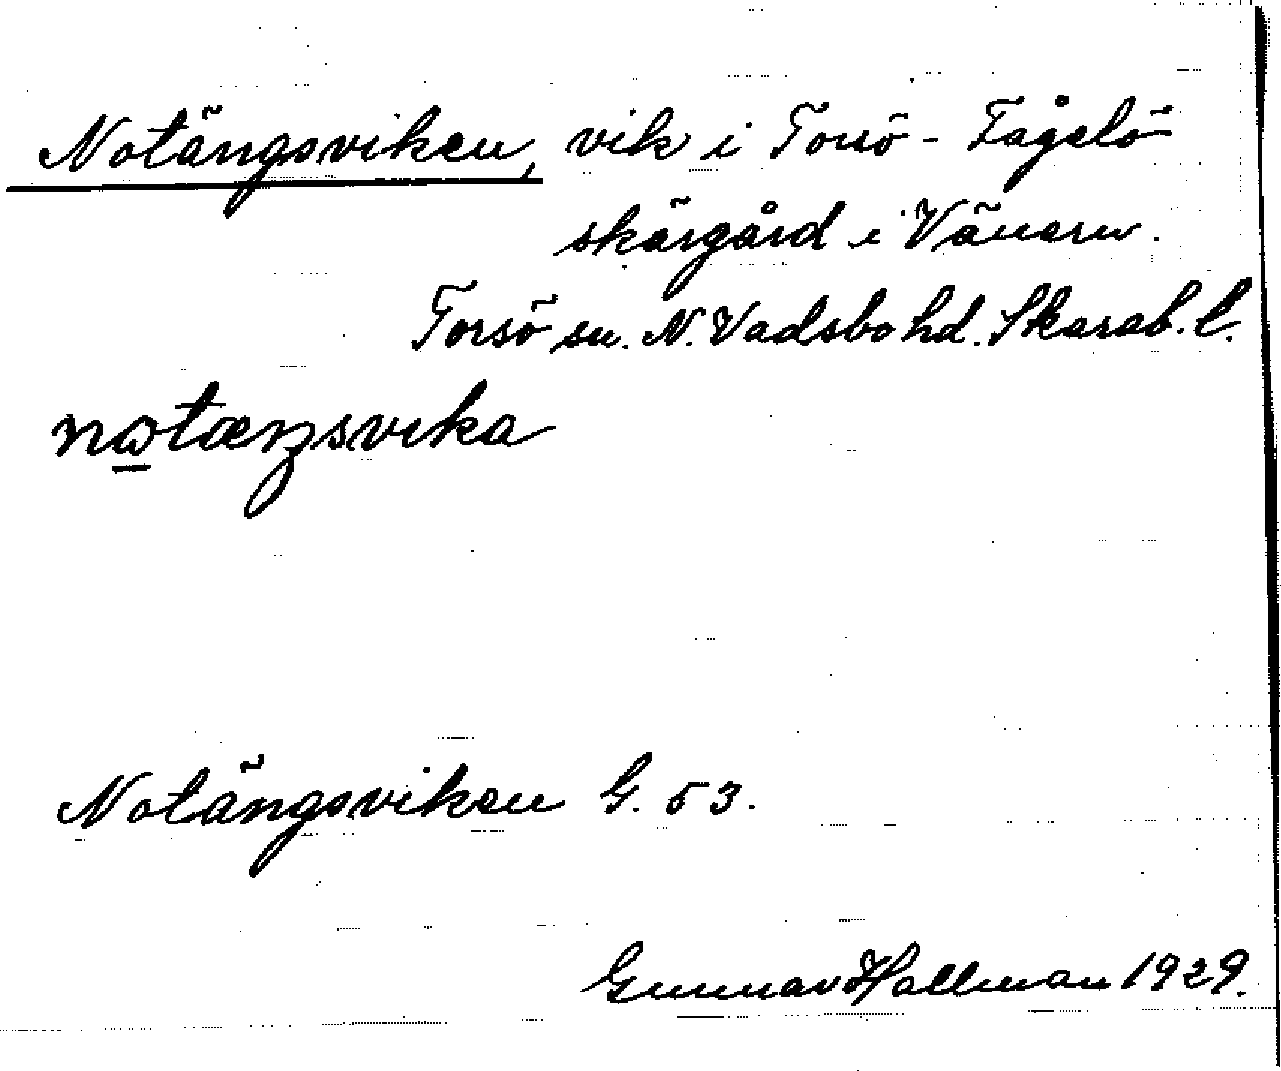 Notängsviken, vik i Torsö - Fågelö
skärgård i Vänern.
Torsö sn. N. Vadsbo hd. Skarab. l.
nωtæŋsvika
Notängsviken G. 53.
Gunnar Hallman 1929.